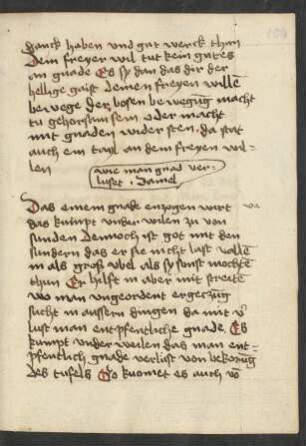 danck haben vnd gut werck thun
Dein freyer wil tut kein gutes
on gnade Es sy dan das dir der
hellige gaist deinen freyen willē
bewege der bosen bewegūg macht
tu gehorsam sein oder macht
mit gnaden widersten, da stat
auch ein tayl an dem freyen wil-
len
wie man gnad ver-
luset
Das einem gnade enzogen wirt
das kumpt vnder wilen zu von
sunden Dennoch ist got mit den
sundern das er sie nicht last vallen
in als groß ubel als sy sunst mochten
thun Er hilft in aber mit streite
wo man vngeordent ergerzūg
sucht in aussern dingen da mit v̄
lust man entpfentliche gnade Es
kumpt vnder weilen das man ent-
pfentlich gnade verlist von bekorūg
des tufels So kuomet es auch vō